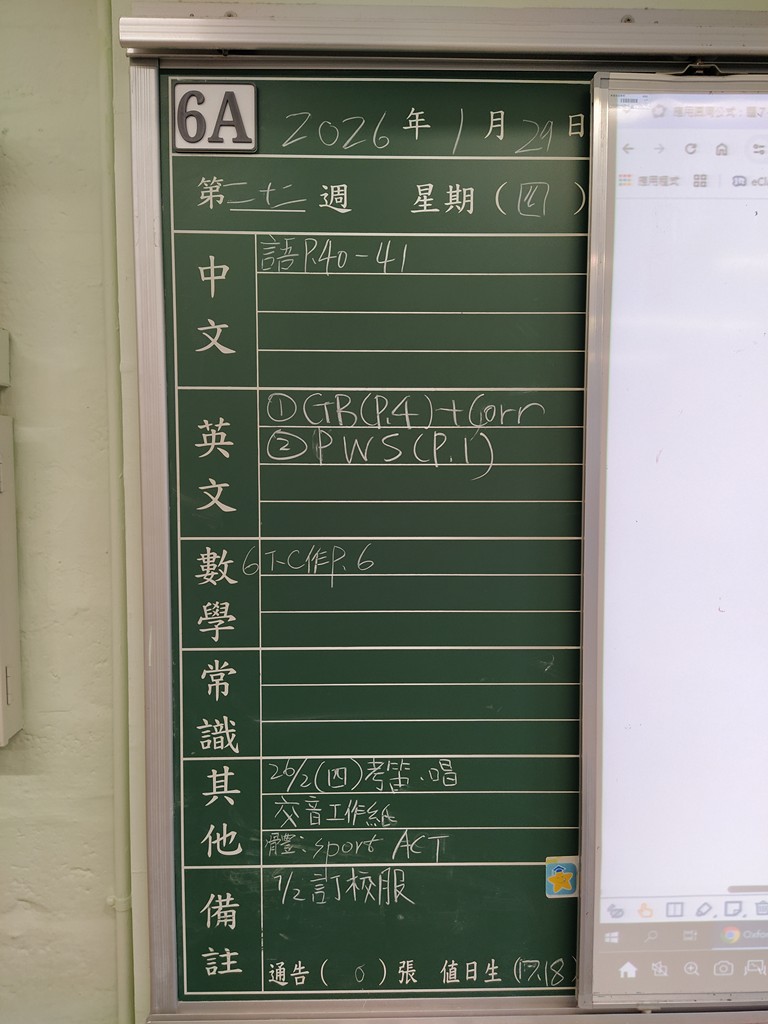 6A 2026年1月29日
第二十二週 星期(四)
中文
語P.40-41
英文
①GB(P.4)+Corr
②PWS(P.1)
數學
6下C作P.6
常識
其他
26/2(四)考笛、唱
交音工作紙
體:sport ACT
備註
7/2訂校服
通告(0)張 值日生(17.18)
應用程式